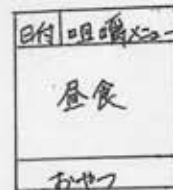 日付 咀嚼メニュー
昼食
おやつ